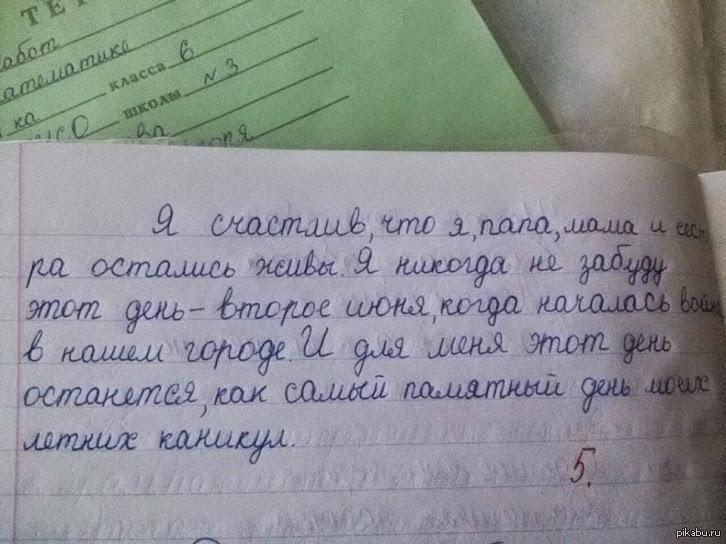 ТЕ
работ
математике
ка класса 6
школы №3
Я счастлив, что я, папа, мама и сест
ра остались живы. Я никогда не забуду
этот день – второе июня, когда началась вой
в нашем городе. И для меня этот день
останется, как самый памятный день моих
летних каникул.
5.
pikabu.ru